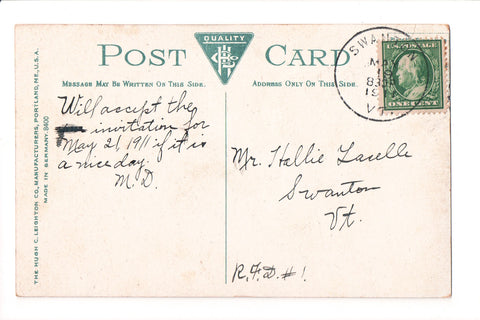 QUALITY
POST CARD
MESSAGE MAY BE WRITTEN ON THIS SIDE.
ADDRESS ONLY ON THIS SIDE.
THE HUGH C. LEIGHTON CO., MANUFACTURERS, PORTLAND, ME., U.S.A.
MADE IN GERMANY. 8400
Will accept the
invitation for
May 21, 1911 if it is
a nice day.
M.D.
SWANT
MAY
VT.
U.S. POSTAGE
ONE CENT
Mr. Hallie Laselle
Swanton
Vt.
R.F.D. #1